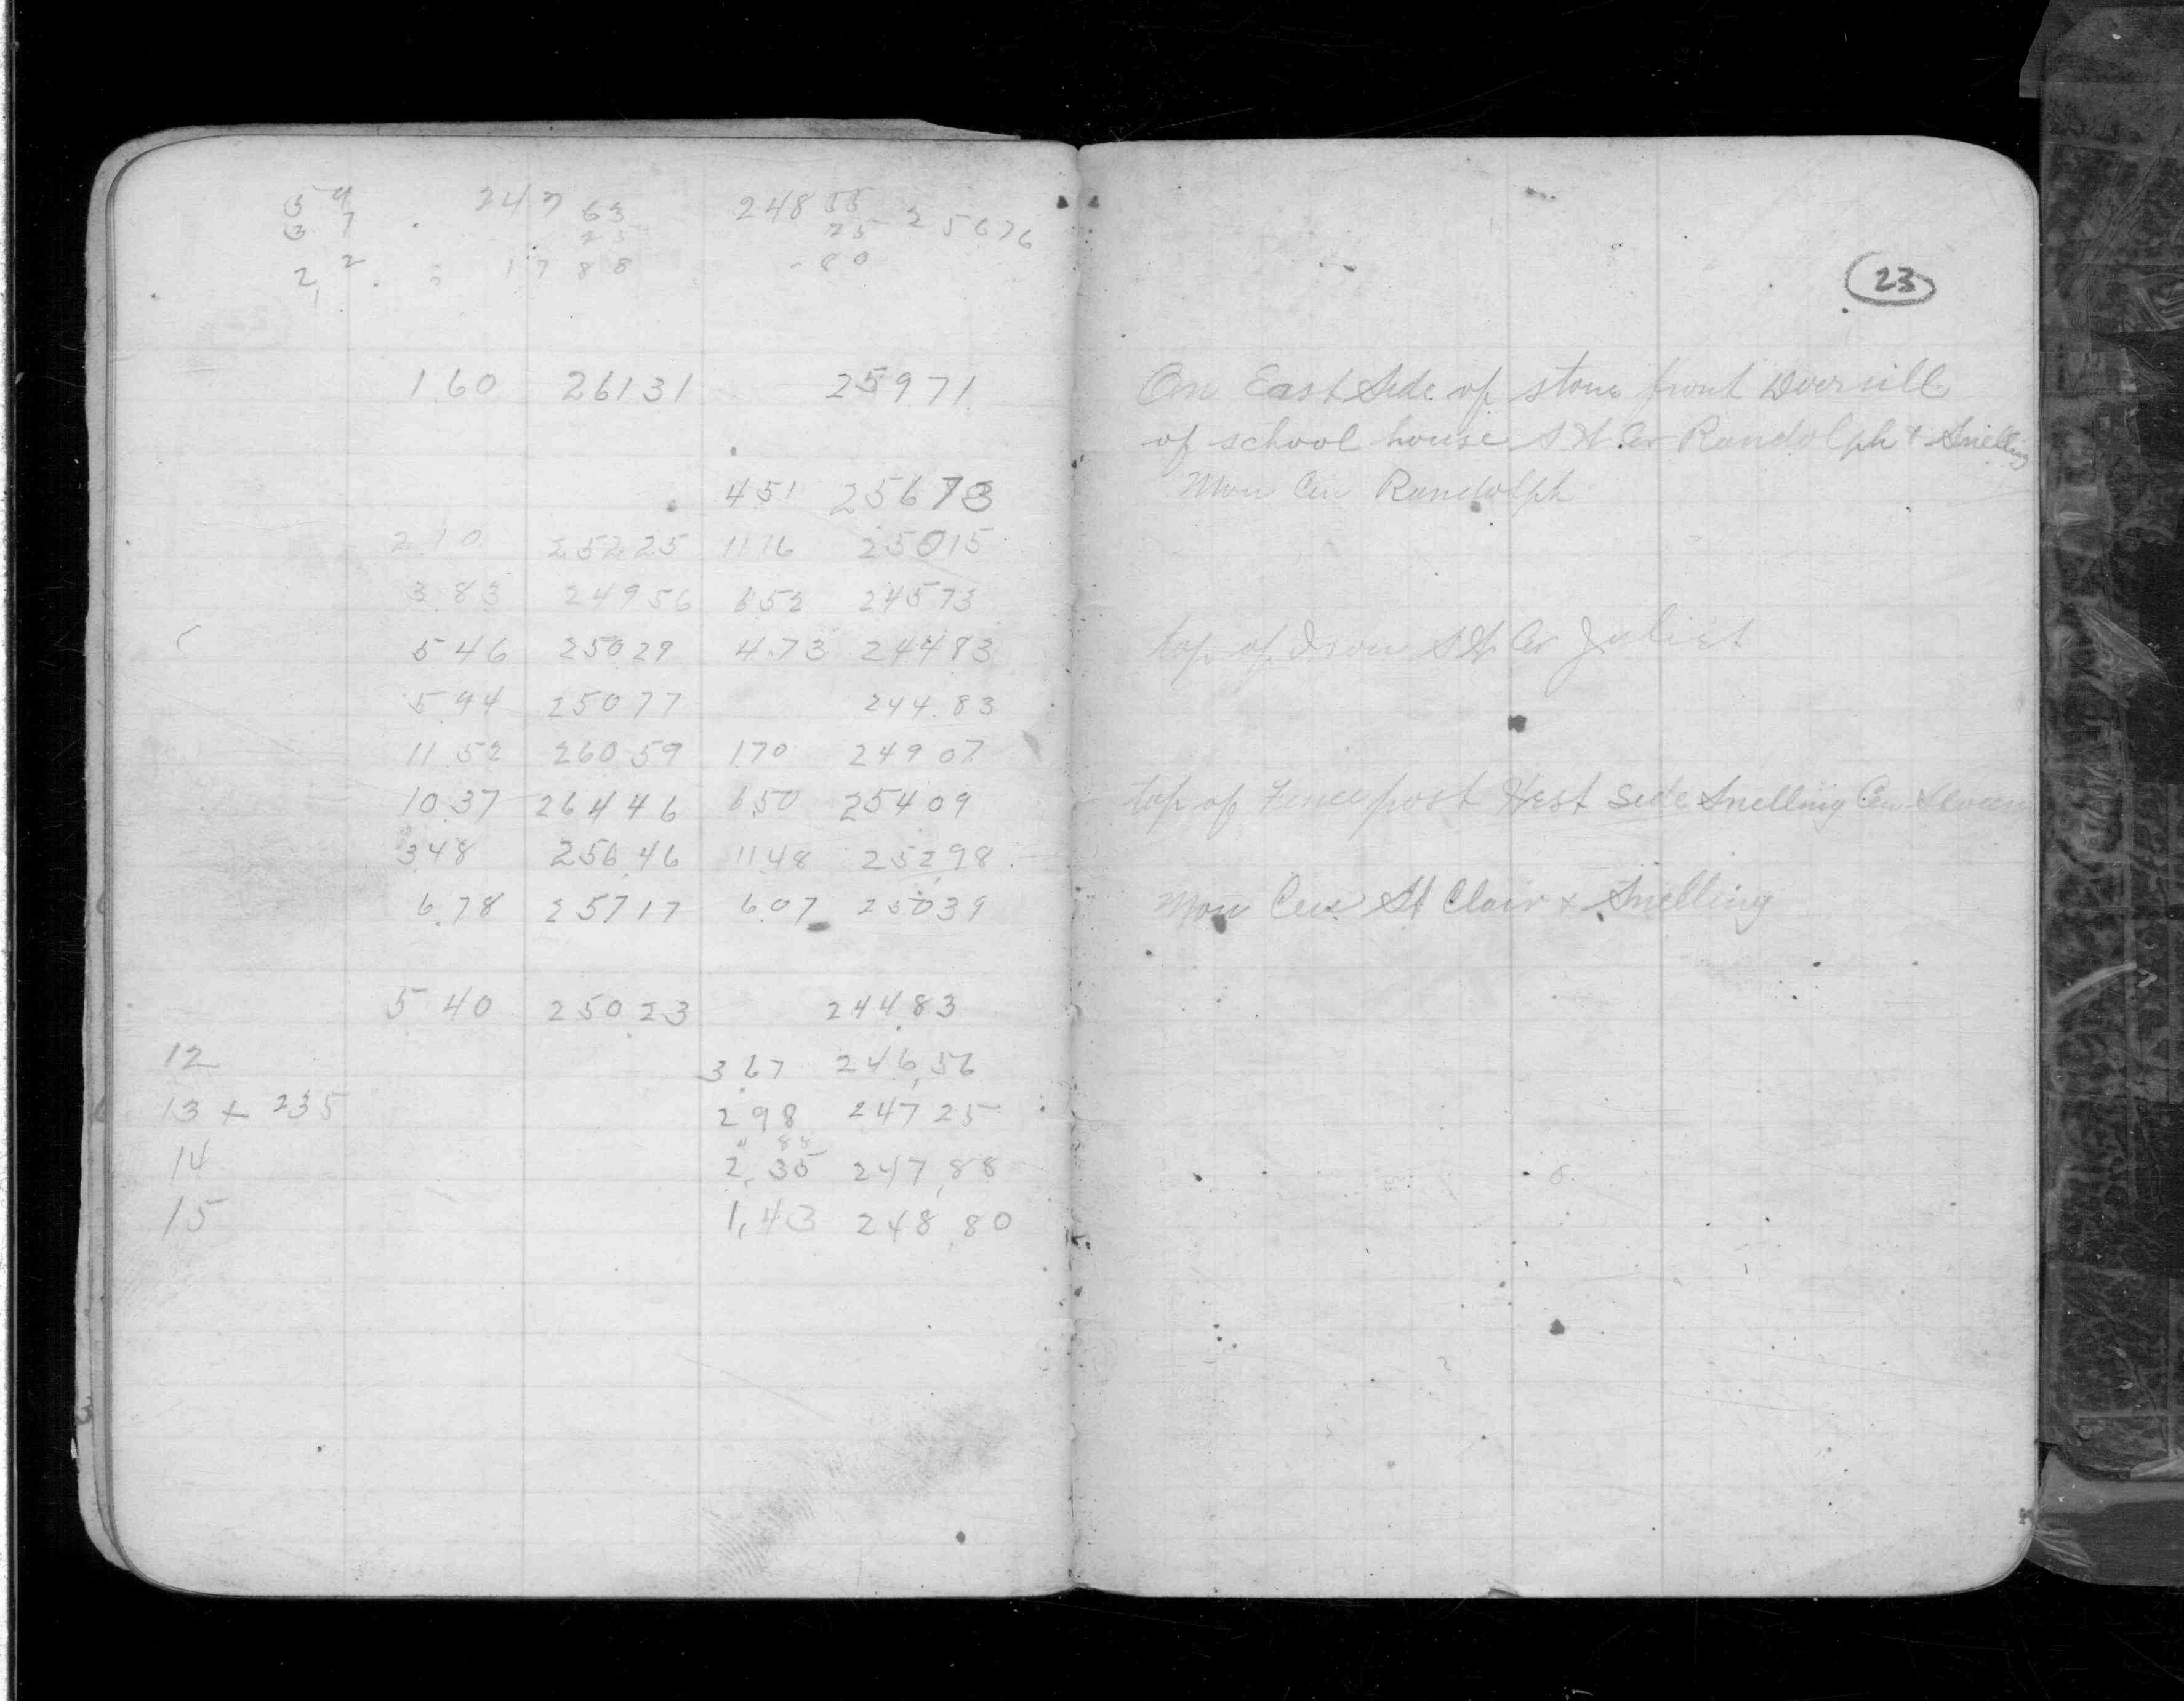 59 247 63 248 55
37 25 25 25676
22 1788 80
1 60 261 31 259 71
4 51 256 73
2 10 252 25 11 16 250 15
3 83 249 56 6 52 245 73
5 46 250 29 4.73 244 83
5 94 250 77 244.83
11 52 260 59 1 70 249 07
10 37 264 46 6 50 254 09
3 48 256 46 11 48 252 98
6 78 257 17 6 07 250 39
5 40 250 23 244 83
12 3 67 246,56
13 + 235 2 98 247 25
14 2,35 247,88
15 1,43 248,80
23
On East Side of stone front Doorsill
of school house S W. Cor Randolph + Snelling
Mon Cen Randolph
top of Iron S W. Cor Juliet
top of Fence post West Side Snelling Cen
Mon Cen St Clair + Snelling